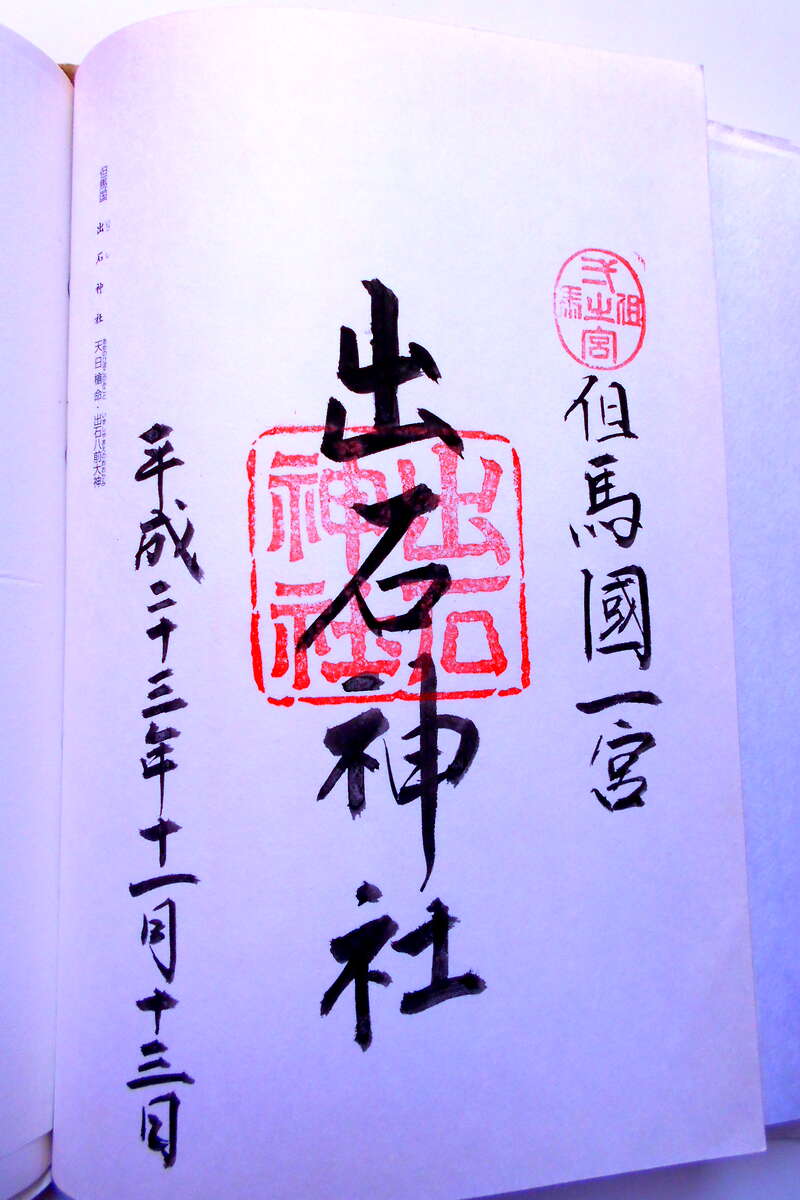 但馬國一宮
出石神社
平成二十三年十一月十三日
但馬国 出石神社 天日槍命・出石八前大神
出石
神社